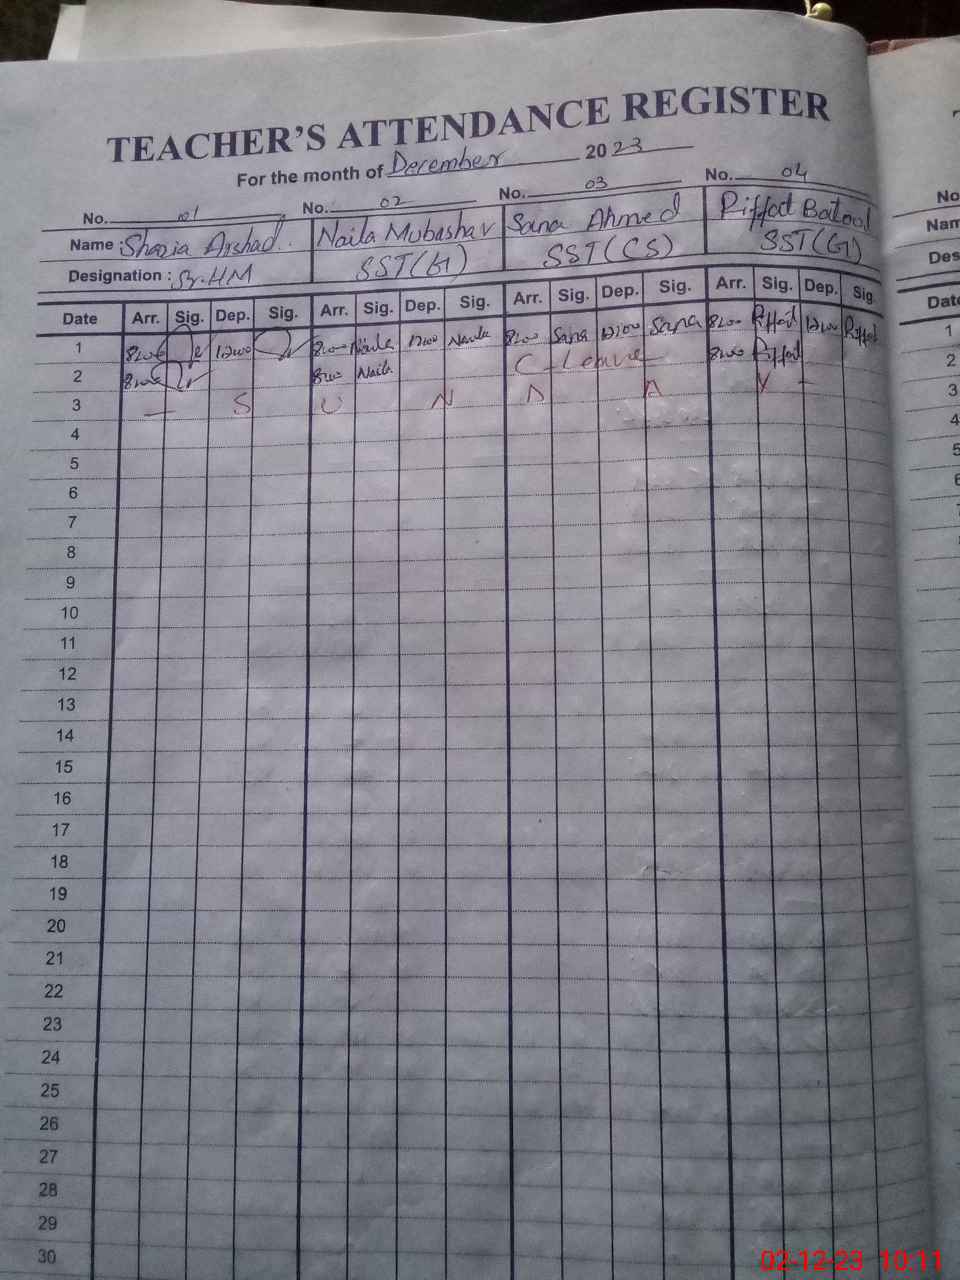 TEACHER'S ATTENDANCE REGISTER
For the month of December 2023
No. 01 No. 02 No. 03 No. 04
Name : Shazia Arshad. Naila Mubashar Sana Ahmed Riffat Batool
Designation : Sr. HM SST(G) SST(CS) SST(G)
Date Arr. Sig. Dep. Sig. Arr. Sig. Dep. Sig. Arr. Sig. Dep. Sig. Arr. Sig. Dep. Sig.
1 8:00 12:00 8:00 Naila 12:00 Naila 8:00 Sana 12:00 Sana 8:00 Riffat 12:00 Riffat
2 8:00 8:00 Naila C - Leave 8:00 Riffat
3 — S U N D A Y —
4
5
6
7
8
9
10
11
12
13
14
15
16
17
18
19
20
21
22
23
24
25
26
27
28
29
30
No
Nam
Des
Date
1
2
3
4
5
6
02-12-23 10:11